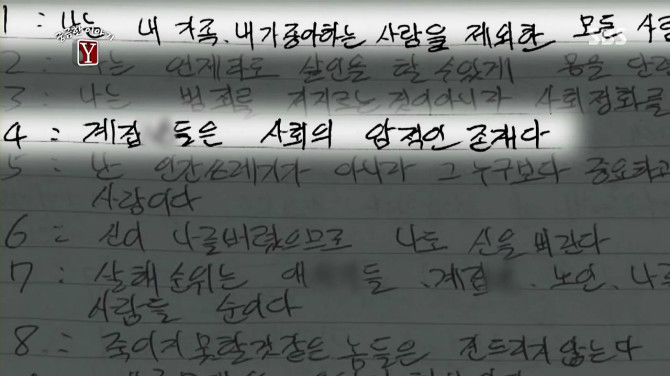 궁금한 이야기 Y
SBS
1: 나는 내 가족, 내가 좋아하는 사람을 제외한 모든 사람
2: 나는 언제라도 살인을 할 수 있게 몸을 단련
3: 나는 범죄를 저지르는 것이 아니라 사회정화를
4: 계집 들은 사회의 암적인 존재다
5: 난 인간쓰레기가 아니라 그 누구보다 중요하고
사람이다
6: 신이 나를 버렸으므로 나도 신을 버린다
7: 살해 순위는 애 들, 계집, 노인, 나
사람들 순이다
8: 죽이지 못할것 같은 놈들은 건드리지 않는다